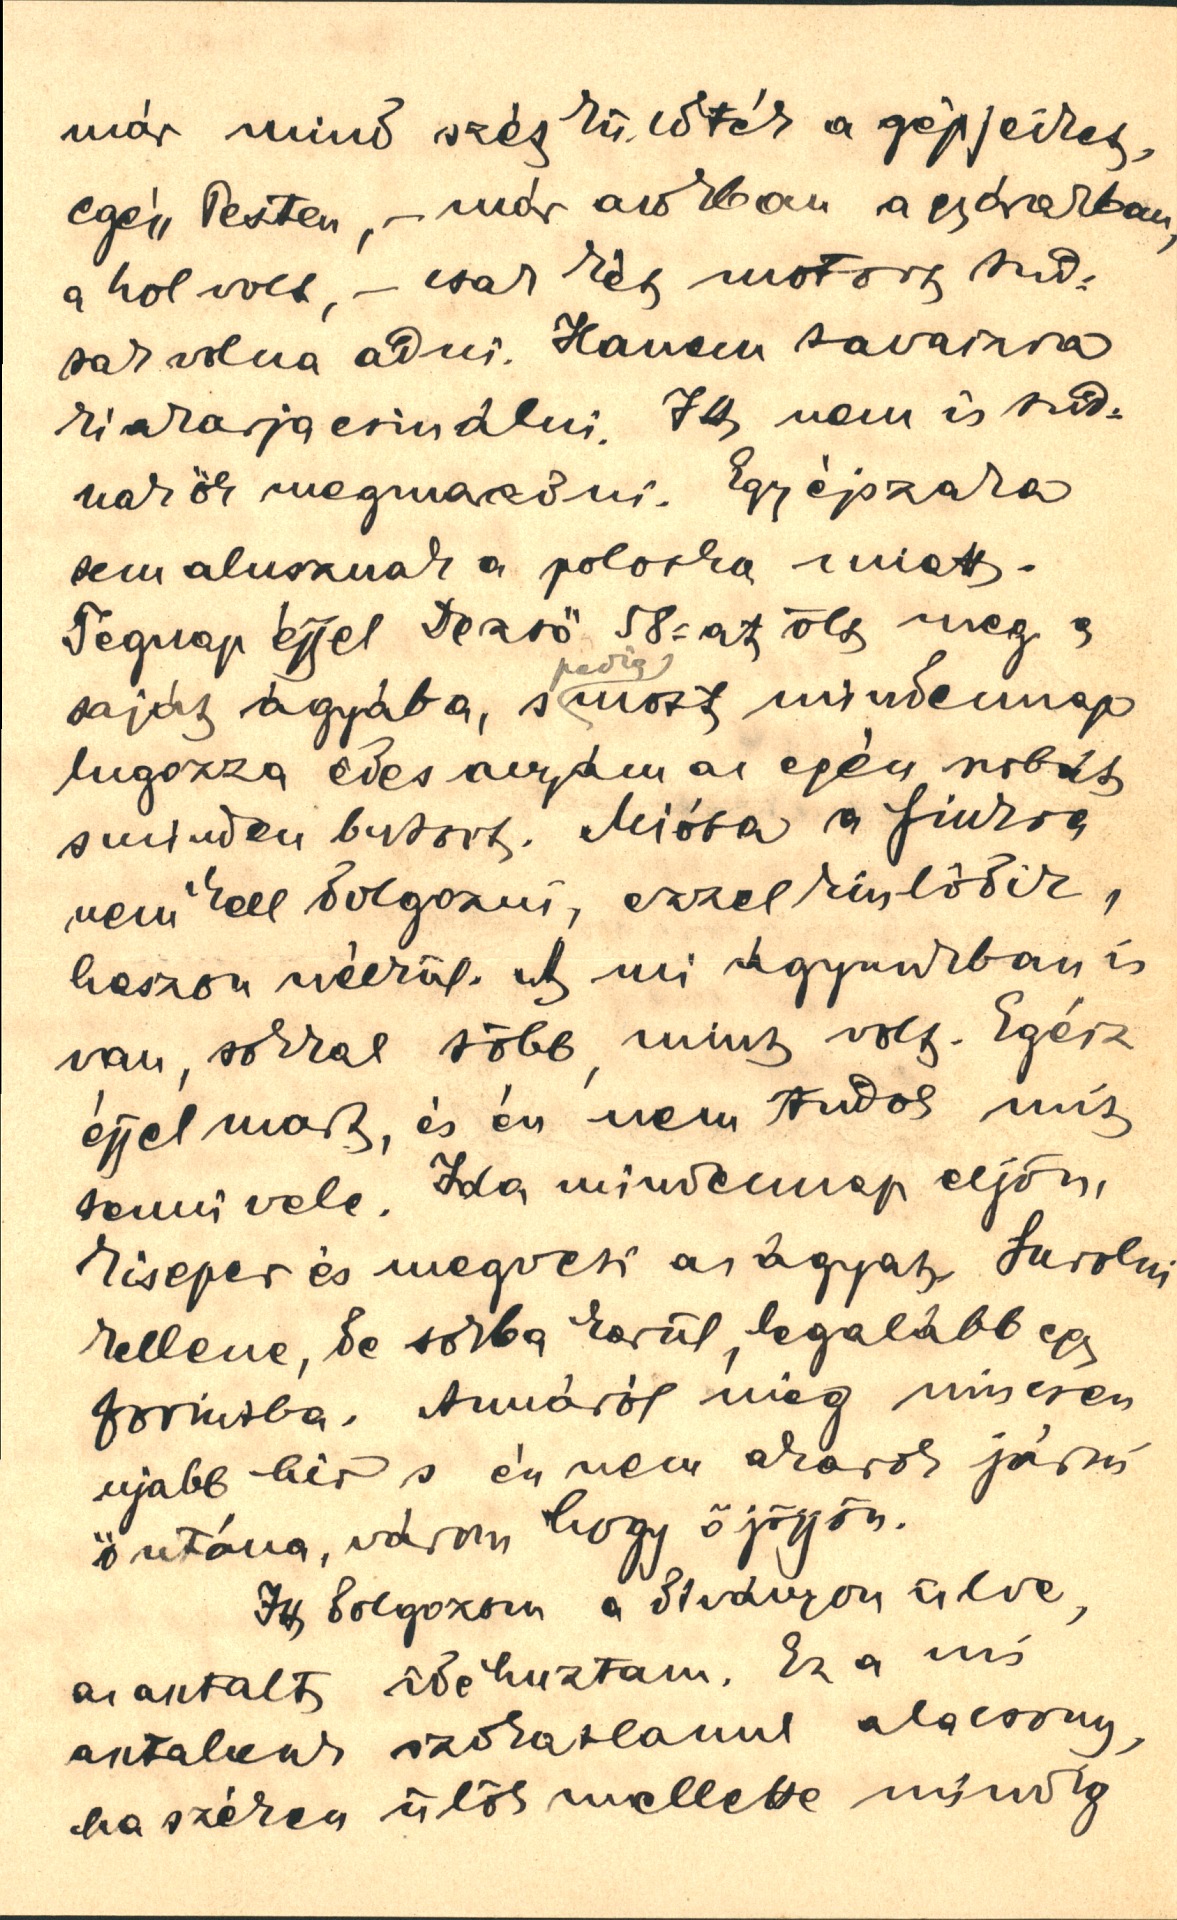 már mind szétküldték a gépjeiket,
egész Pesten, – már azokban a gyárakban,
a hol volt, – csak két motort tud-
tak volna adni. Hanem tavaszra
ki akarja csinálni. Itt nem is tud-
nak ők megmaradni. Egy éjszaka
sem alusznak a poloska miatt.
Tegnap éjjel Dezső 58-at ölt meg a
saját ágyába, s pedig most mindennap
lugozza édes anyám az egész szobát
s minden butort. Mióta a fiukra
nem kell dolgozni, ezzel kinlódik,
haszon nélkül. A mi ágyunkban is
van, sokkal több, mint volt. Egész
éjjel mart, és én nem tudok mit
tenni vele. Ida mindennap eljön,
kiseper és megveti az ágyat. Surolni
kellene, de sokba kerül, legalább egy
forintba. Annáról még nincsen
ujabb hír s én nem akarok járni
ő utána, várom hogy ő jöjjön.
Itt dolgozom a díványon ülve,
az asztalt idehuztam. Ez a mi
asztalunk szokatlanul alacsony,
ha széken ülök mellette mindíg